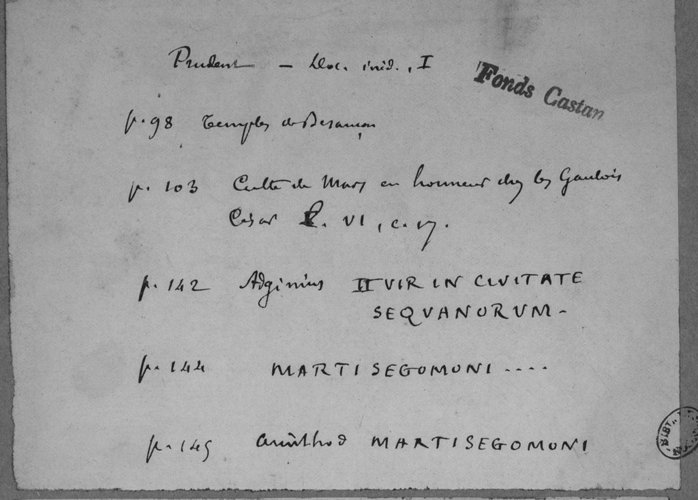 Prudent — Doc. inéd., I
Fonds Castan
p. 98 Temples de Besançon
p. 103 Culte de Mars en honneur chez les Gaulois
César l. VI, c. 17.
p. 142 Adginius IIVIR IN CIVITATE
SEQVANORVM -
p. 144 MARTI SEGOMONI ....
p. 145 MARTI SEGOMONI